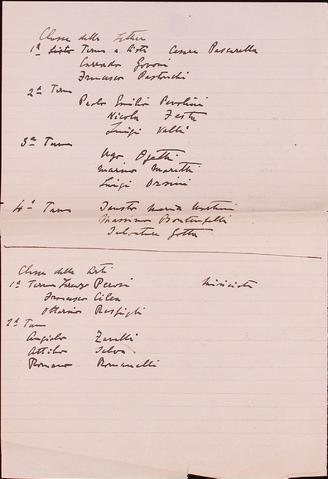 Classe delle Lettere
1ª Lista Terna a Lista Cesare Pascarella
Corrado Govoni
Francesco Pastonchi
2ª Terna
Paolo Emilio Pavolini
Nicola Festa
Luigi Valli
3ª Terna
Ugo Ojetti
Marino Moretti
Luigi Orsini
4ª Terna Fausto Maria Martini
Massimo Bontempelli
Salvatore Gotta
Classe delle Arti
1ª Terna Lorenzo Perosi
Francesco Cilea
Ottorino Respighi
2ª Terna
Angiolo Zanelli
Attilio Selva
Romano Romanelli